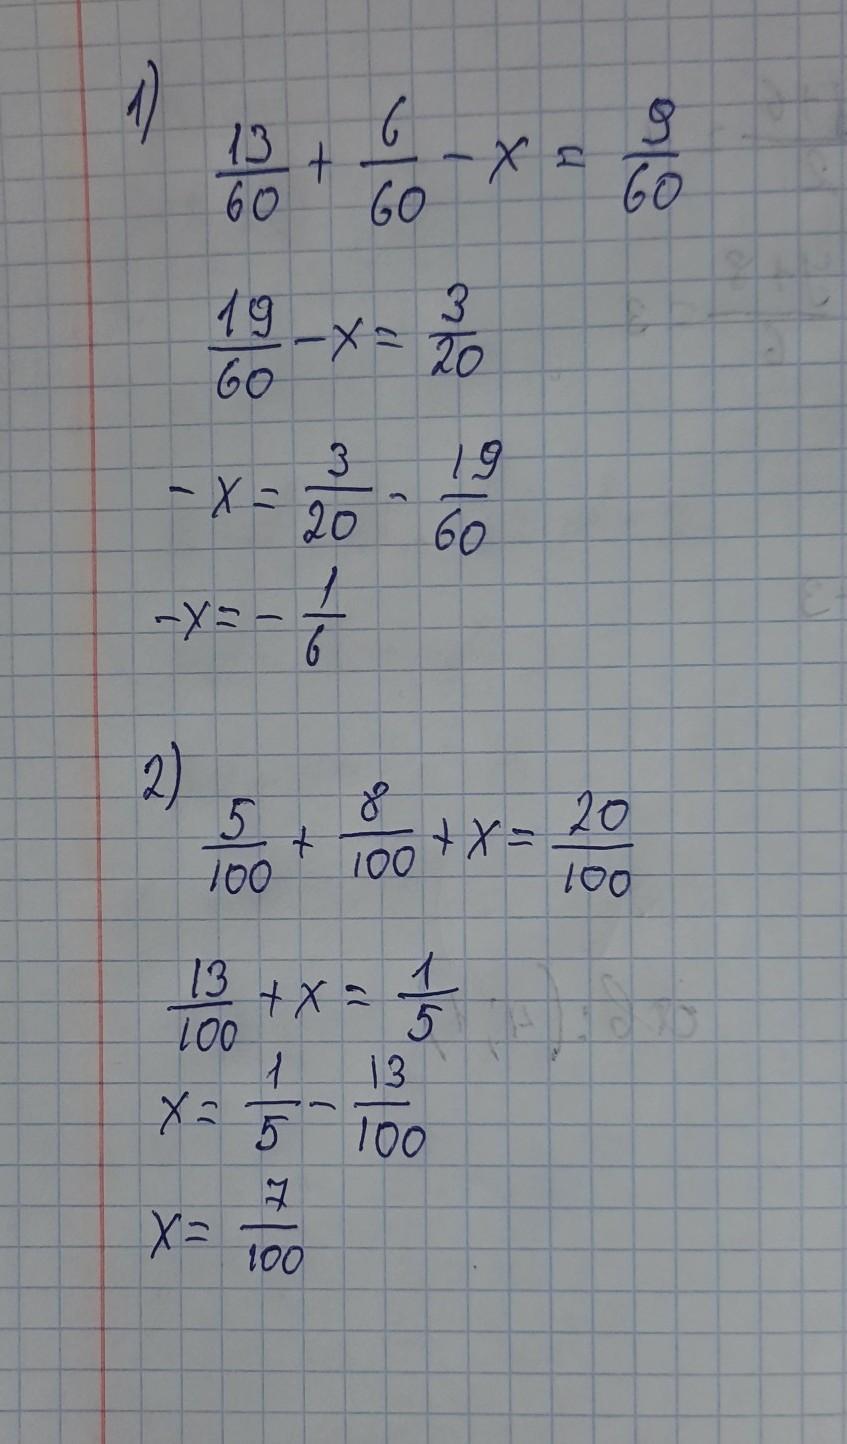 1)
13/60 + 6/60 - x = 9/60
19/60 - x = 3/20
- x = 3/20 - 19/60
- x = - 1/6
2)
5/100 + 8/100 + x = 20/100
13/100 + x = 1/5
x = 1/5 - 13/100
x = 7/100